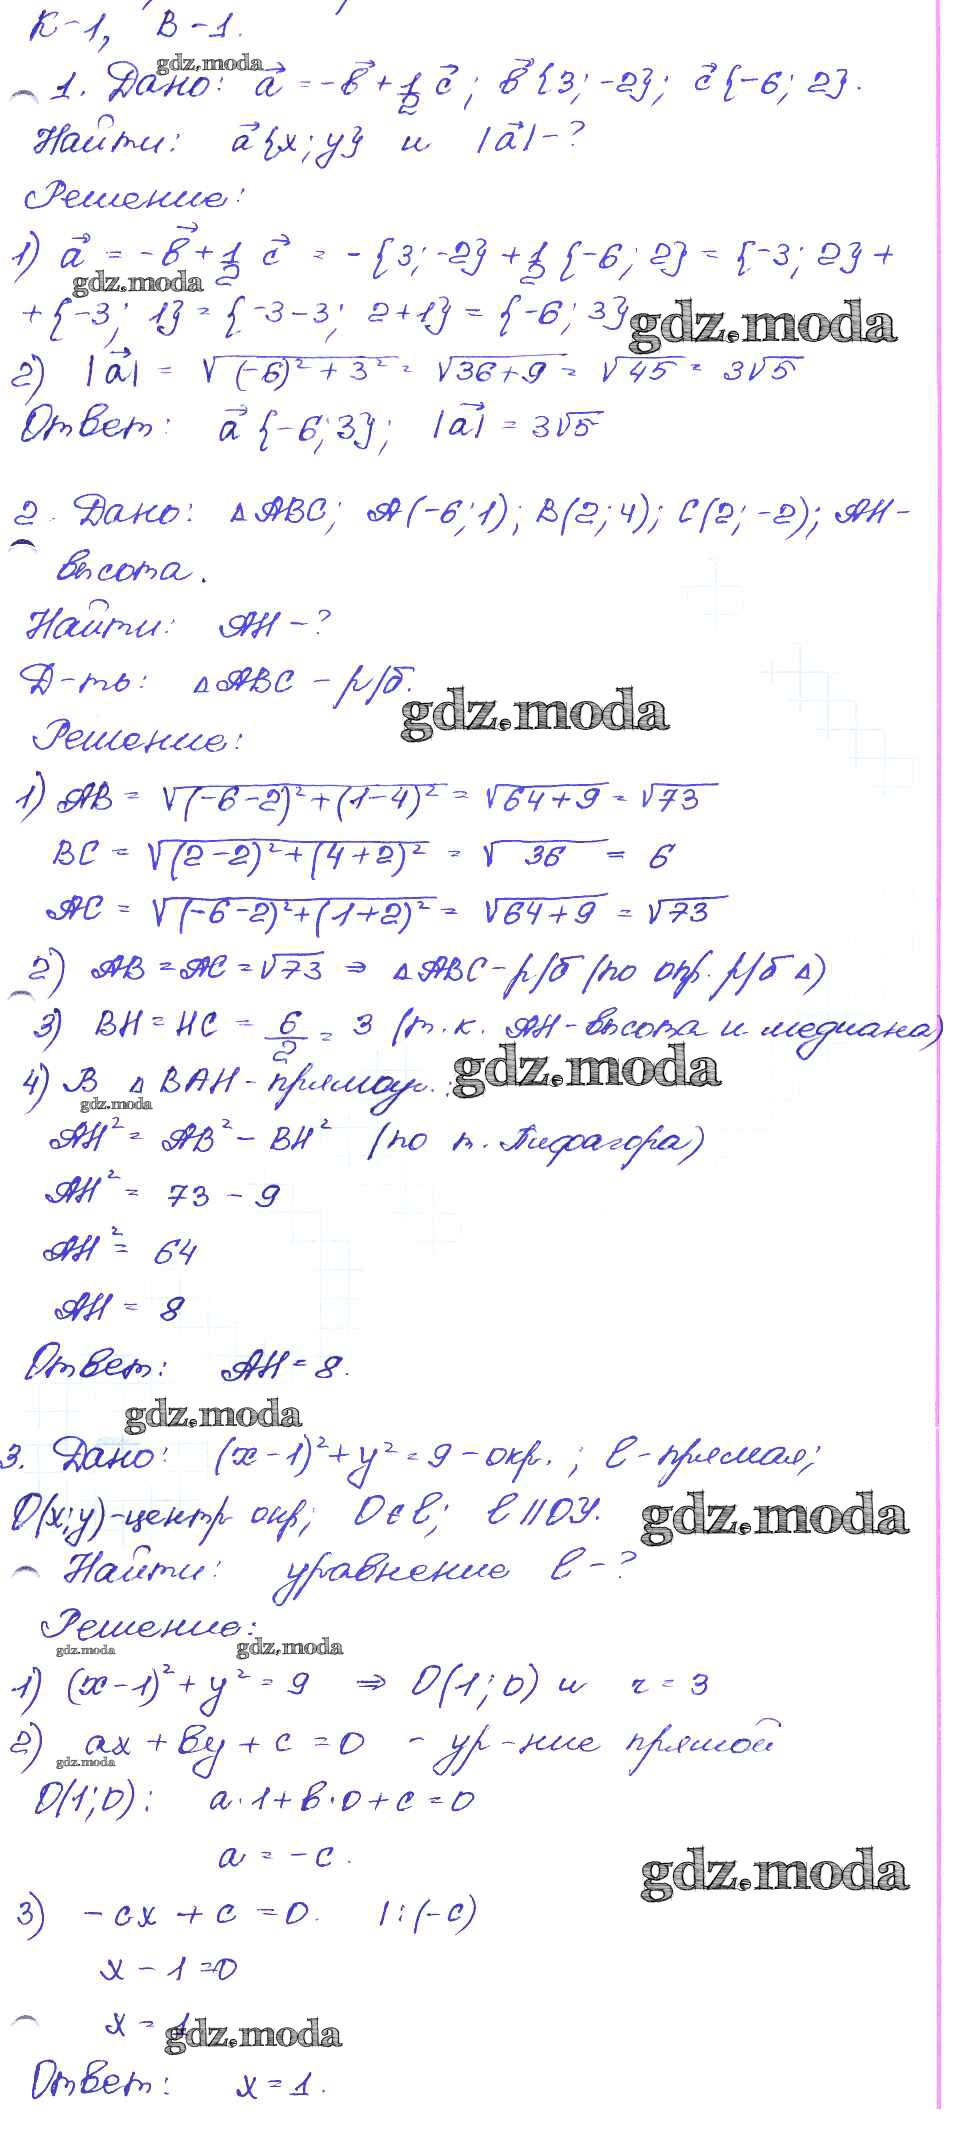 К-1, В-1.
gdz.moda
1. Дано: a⃗ = -b⃗ + 1/2 c⃗; b⃗{3; -2}; c⃗{-6; 2}.
Найти: a⃗{x; y} и |a⃗| - ?
Решение:
1) a⃗ = -b⃗ + 1/2 c⃗ = -{3; -2} + 1/2 {-6; 2} = {-3; 2} +
gdz.moda
+ {-3; 1} = {-3-3; 2+1} = {-6; 3}
gdz.moda
2) |a⃗| = √((-6)² + 3²) = √(36+9) = √45 = 3√5
Ответ: a⃗{-6; 3}; |a⃗| = 3√5
2. Дано: △ABC; A(-6; 1); B(2; 4); C(2; -2); AH-
высота.
Найти: AH - ?
Д-ть: △ABC - р/б.
gdz.moda
Решение:
1) AB = √((-6-2)² + (1-4)²) = √(64+9) = √73
BC = √((2-2)² + (4+2)²) = √36 = 6
AC = √((-6-2)² + (1+2)²) = √(64+9) = √73
2) AB = AC = √73 ⇒ △ABC - р/б (по опр. р/б △)
3) BH = HC = 6/2 = 3 (т.к. AH - высота и медиана)
gdz.moda
4) В △BAH - прямоуг.:
gdz.moda
AH² = AB² - BH² (по т. Пифагора)
AH² = 73 - 9
AH² = 64
AH = 8
Ответ: AH = 8.
gdz.moda
3. Дано: (x-1)² + y² = 9 - окр.; l - прямая;
O(x; y) - центр окр; O ∈ l; l || OY.
gdz.moda
Найти: уравнение l - ?
Решение:
gdz.moda gdz.moda
1) (x-1)² + y² = 9 ⇒ O(1; 0) и r = 3
2) ax + by + c = 0 - ур-ние прямой
gdz.moda
O(1; 0): a·1 + b·0 + c = 0
a = -c.
gdz.moda
3) -cx + c = 0. | : (-c)
x - 1 = 0
x = 1
gdz.moda
Ответ: x = 1.